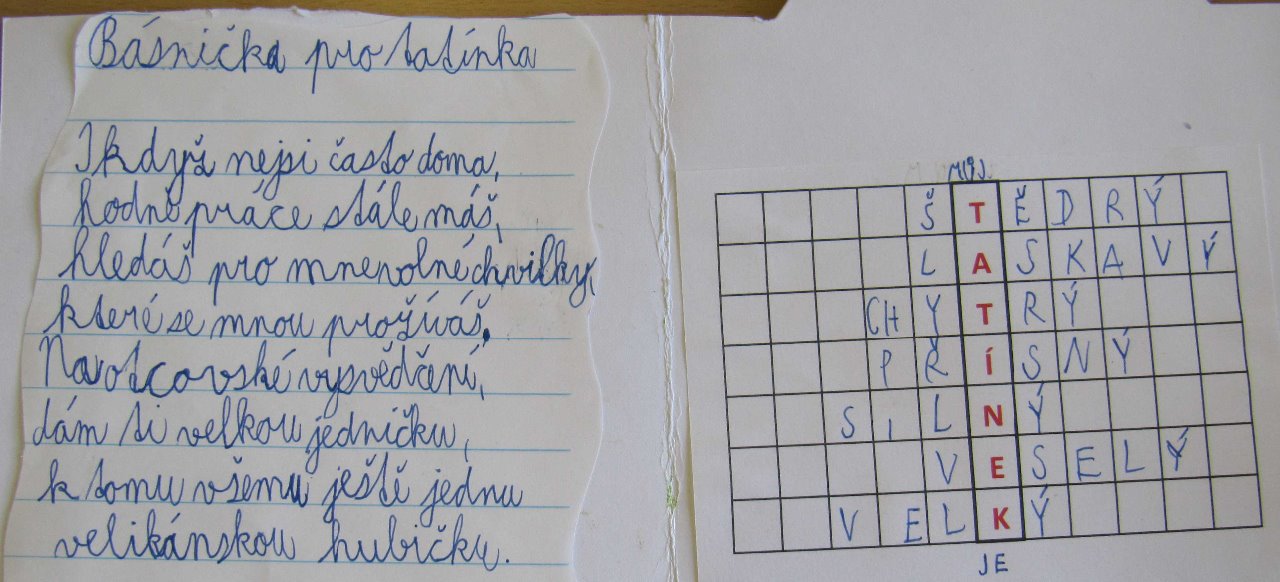 Básnička pro tatínka
I když nejsi často doma,
hodně práce stále máš,
hledáš pro mne volné chvilky,
které se mnou prožíváš.
Na otcovské vysvědčení,
dám ti velkou jedničku,
k tomu všemu ještě jednu
velikánskou hubičku.
MŮJ
ŠTĚDRÝ
LASKAVÝ
CHYTRÝ
PŘÍSNÝ
SILNÝ
VESELÝ
VELKÝ
JE